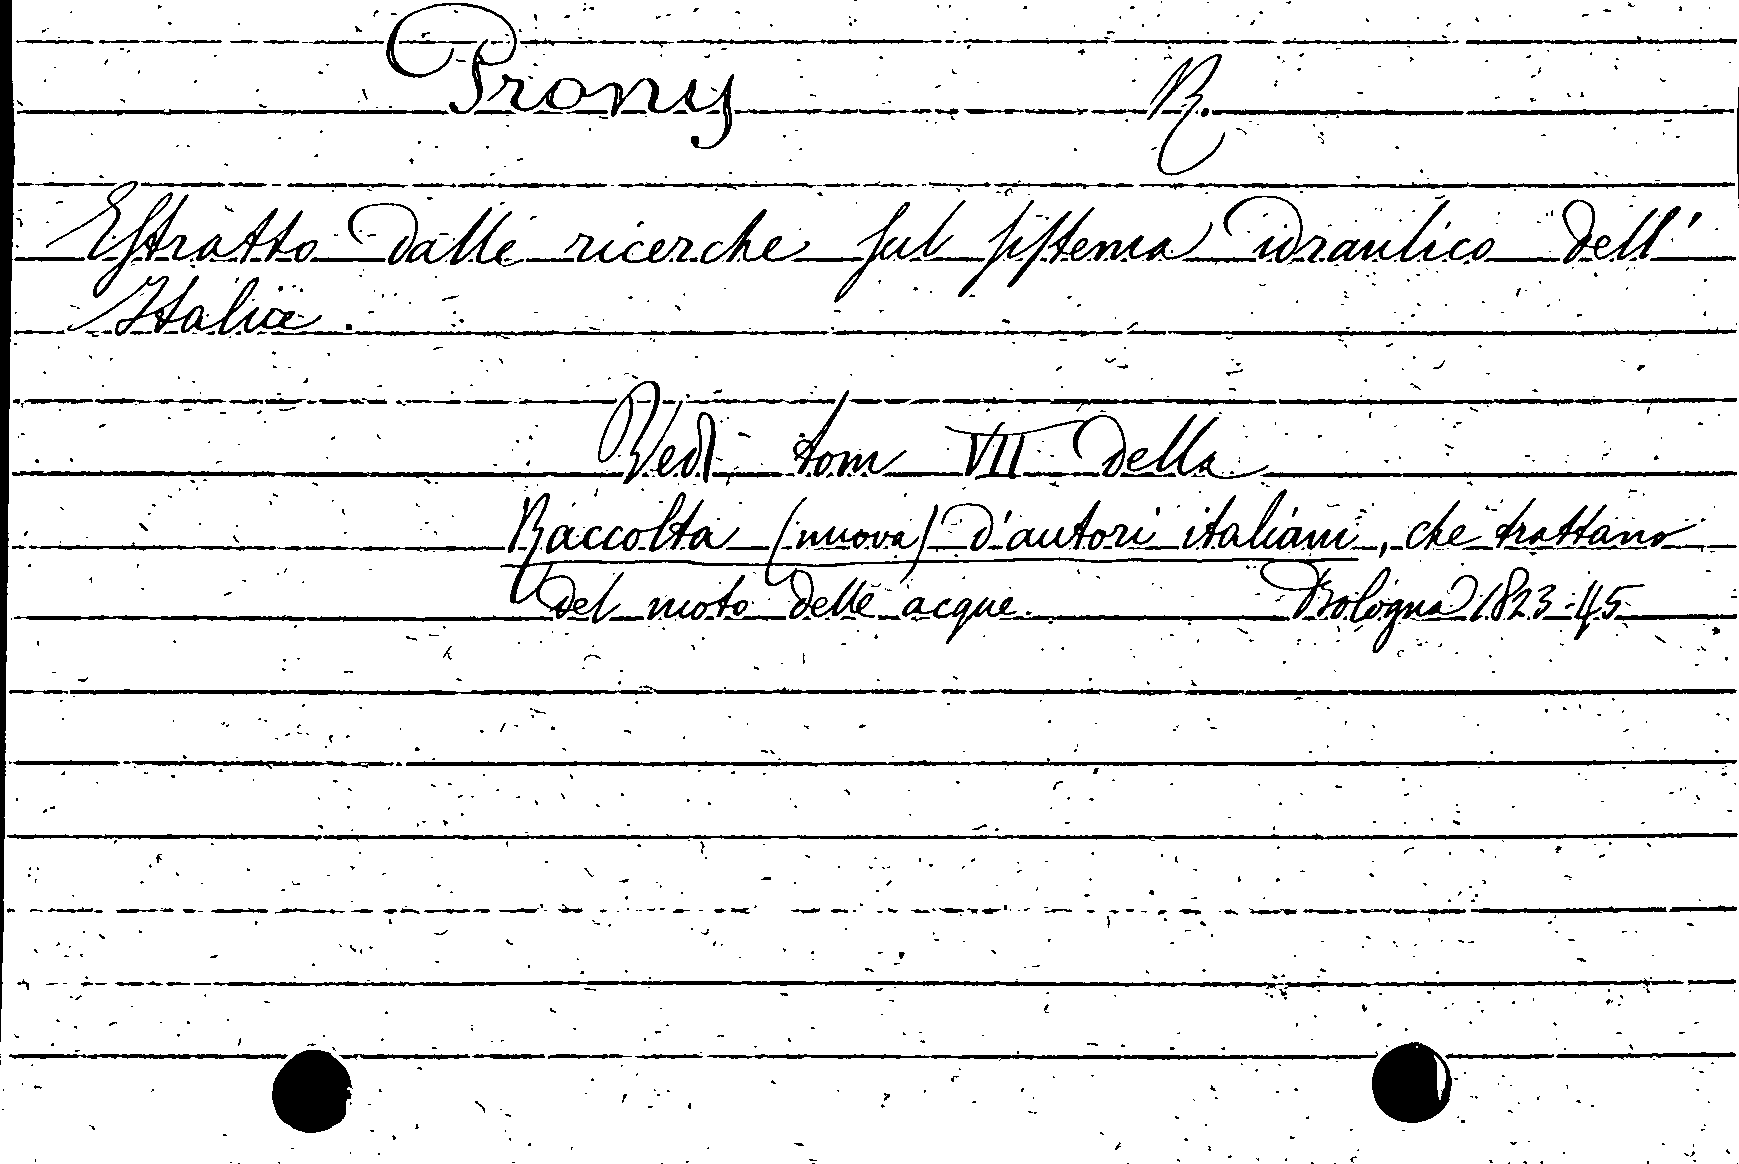 Prony R.
Estratto dalle ricerche sul sistema idraulico dell'
Italia.
Vedi tom VII della
Raccolta (nuova) d'autori italiani, che trattano
del moto delle acque. Bologna 1823-45